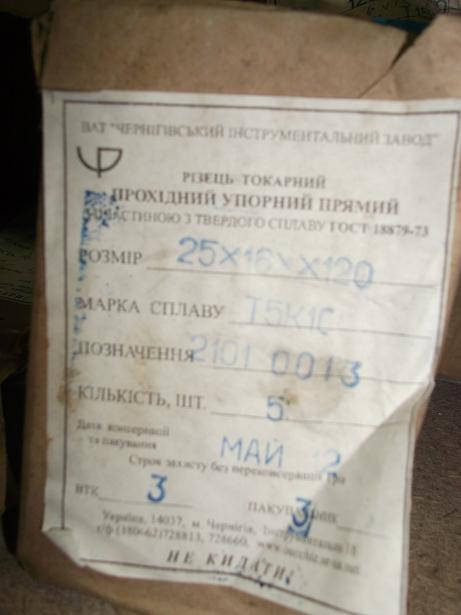 ВАТ "ЧЕРНІГІВСЬКИЙ ІНСТРУМЕНТАЛЬНИЙ ЗАВОД"
РІЗЕЦЬ ТОКАРНИЙ
ПРОХІДНИЙ УПОРНИЙ ПРЯМИЙ
З ТВЕРДОГО СПЛАВУ ГОСТ 18879-73
РОЗМІР 25Х16ХХ120
МАРКА СПЛАВУ Т5К10
ПОЗНАЧЕННЯ 2101 0013
КІЛЬКІСТЬ, ШТ. 5
Дата консервації
та пакування МАЙ
Строк захисту без переконсервації
ВТК 3 3
Україна, 14037, м. Чернігів,
728660,
НЕ КИДАТИ!